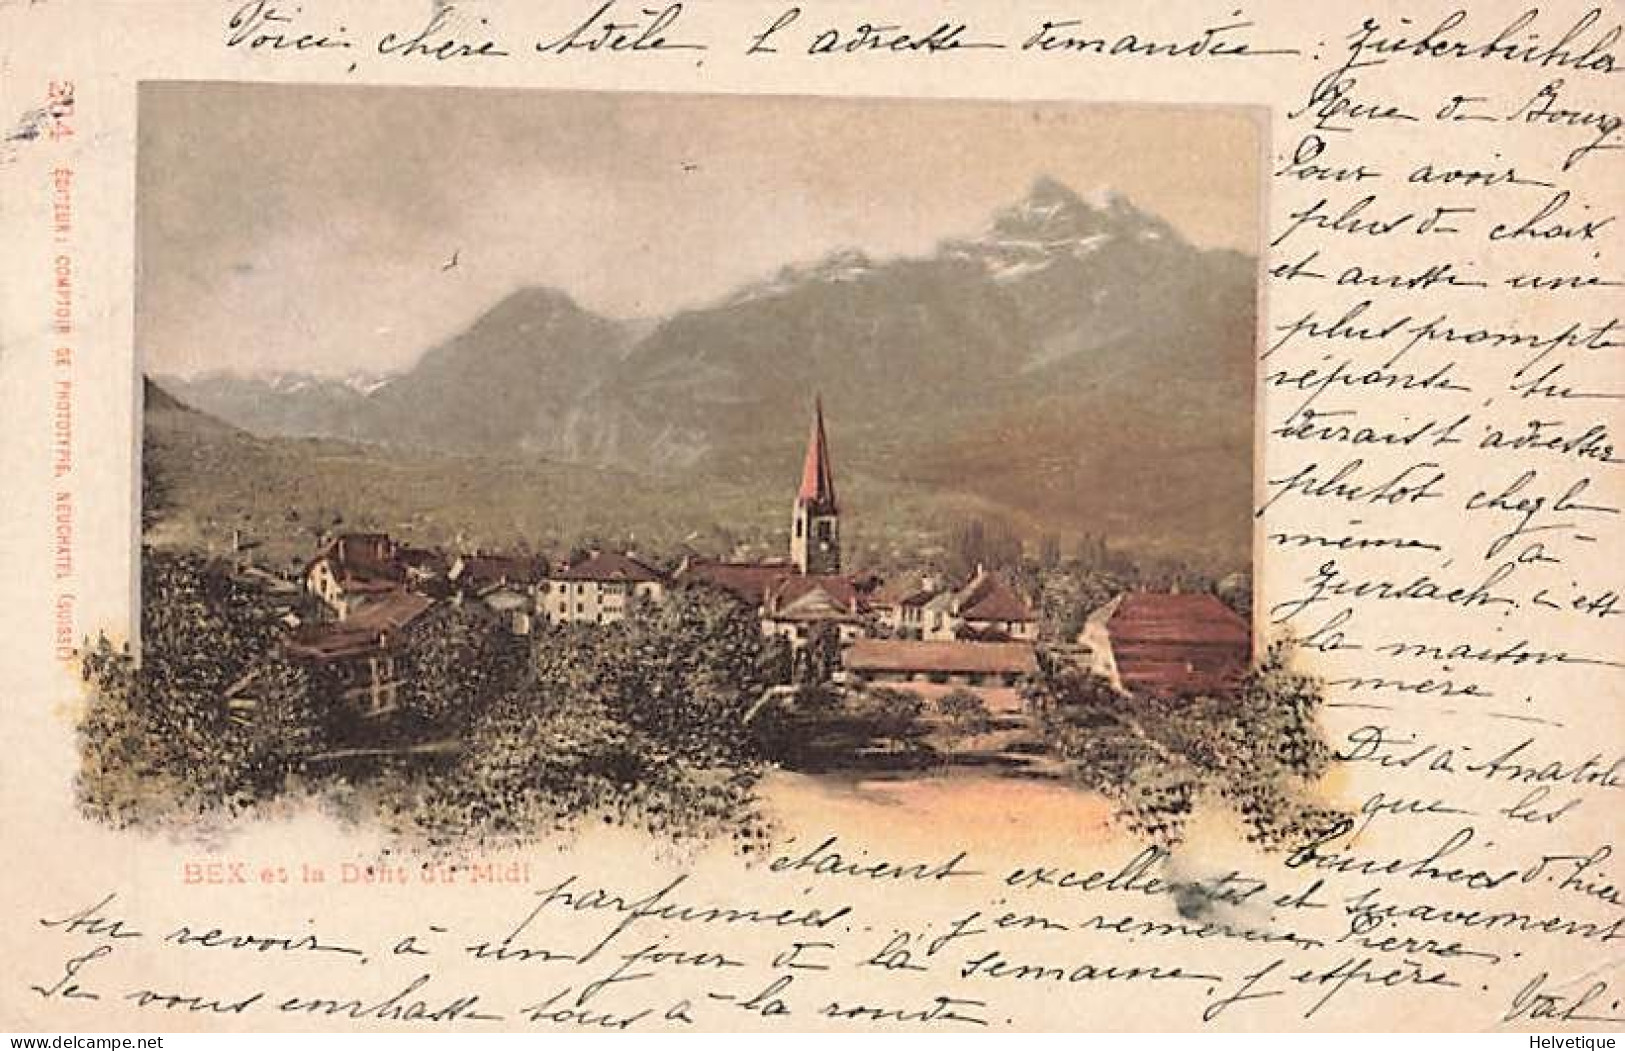 Voici, chère Adèle, l'adresse demandée : Züberbühler
Rue de Bourg.
Pour avoir
plus de choix,
et aussi une
plus prompte
réponse, tu
devrais t'adresser
plutôt chez le
même, à
Zurzach; c'est
la maison
mère.
Dis à Anatole
que les
bouchées d'hier
étaient excellentes et suavement
parfumées... j'en remercie Pierre.
Au revoir, à un jour de la semaine, j'espère.
Je vous embrasse tous à la ronde.
Val.
BEX et la Dent du Midi
304 ÉDITEUR: COMPTOIR DE PHOTOTYPIE, NEUCHATEL (SUISSE)
delcampe.net
Helvetique